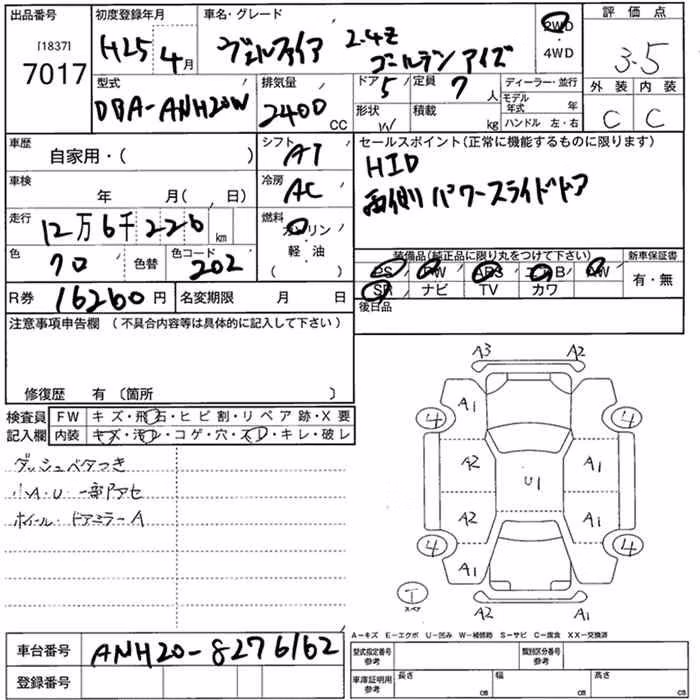 出品番号
[1837]
7017
初度登録年月
H25 4 月
車名・グレード
ヴェルファイア 2.4Z
ゴールデン アイズ
2WD
・
4WD
評価点
3.5
外装 内装
C C
型式
DBA-ANH20W
排気量
2400 CC
ドア 5
形状 W
定員 7 人
積載 kg
ディーラー・並行
モデル年式 年
ハンドル 左・右
車歴
自家用・( )
車検
年 月( , 日)
走行
12万6千226 km
色
クロ
色替
色コード
202
シフト
AT
冷房
AC
燃料
ガソリン
軽・油
( )
セールスポイント(正常に機能するものに限ります)
HID
両側 パワースライドドア
装備品(純正品に限り丸をつけて下さい)
PS PW ABS エアB AW
SR ナビ TV カワ
新車保証書
有・無
後日品
R券 16260円
名変期限 月 日
注意事項申告欄 (不具合内容等は具体的に記入して下さい)
修復歴 有 〔箇所 〕
検査員
記入欄
FW キズ・飛石・ヒビ割・リペア跡・X要
内装 キズ・汚レ・コゲ・穴・スレ・キレ・破レ
ダッシュベタつき
小A・U 一部アセ
ホイール・ドアミラーA
A3 A2
A1
4 4
A2 A1
U1
A2 A1
4 4
A1 A1
T
スペア
A2 A1
A-キズ E-エクボ U-凹み W-補修跡 S-サビ C-腐食 XX-交換済
車台番号
ANH20-8276162
登録番号
型式指定番号
参考
類別区分番号
参考
車庫証明用
参考
長さ cm
幅 cm
高さ cm